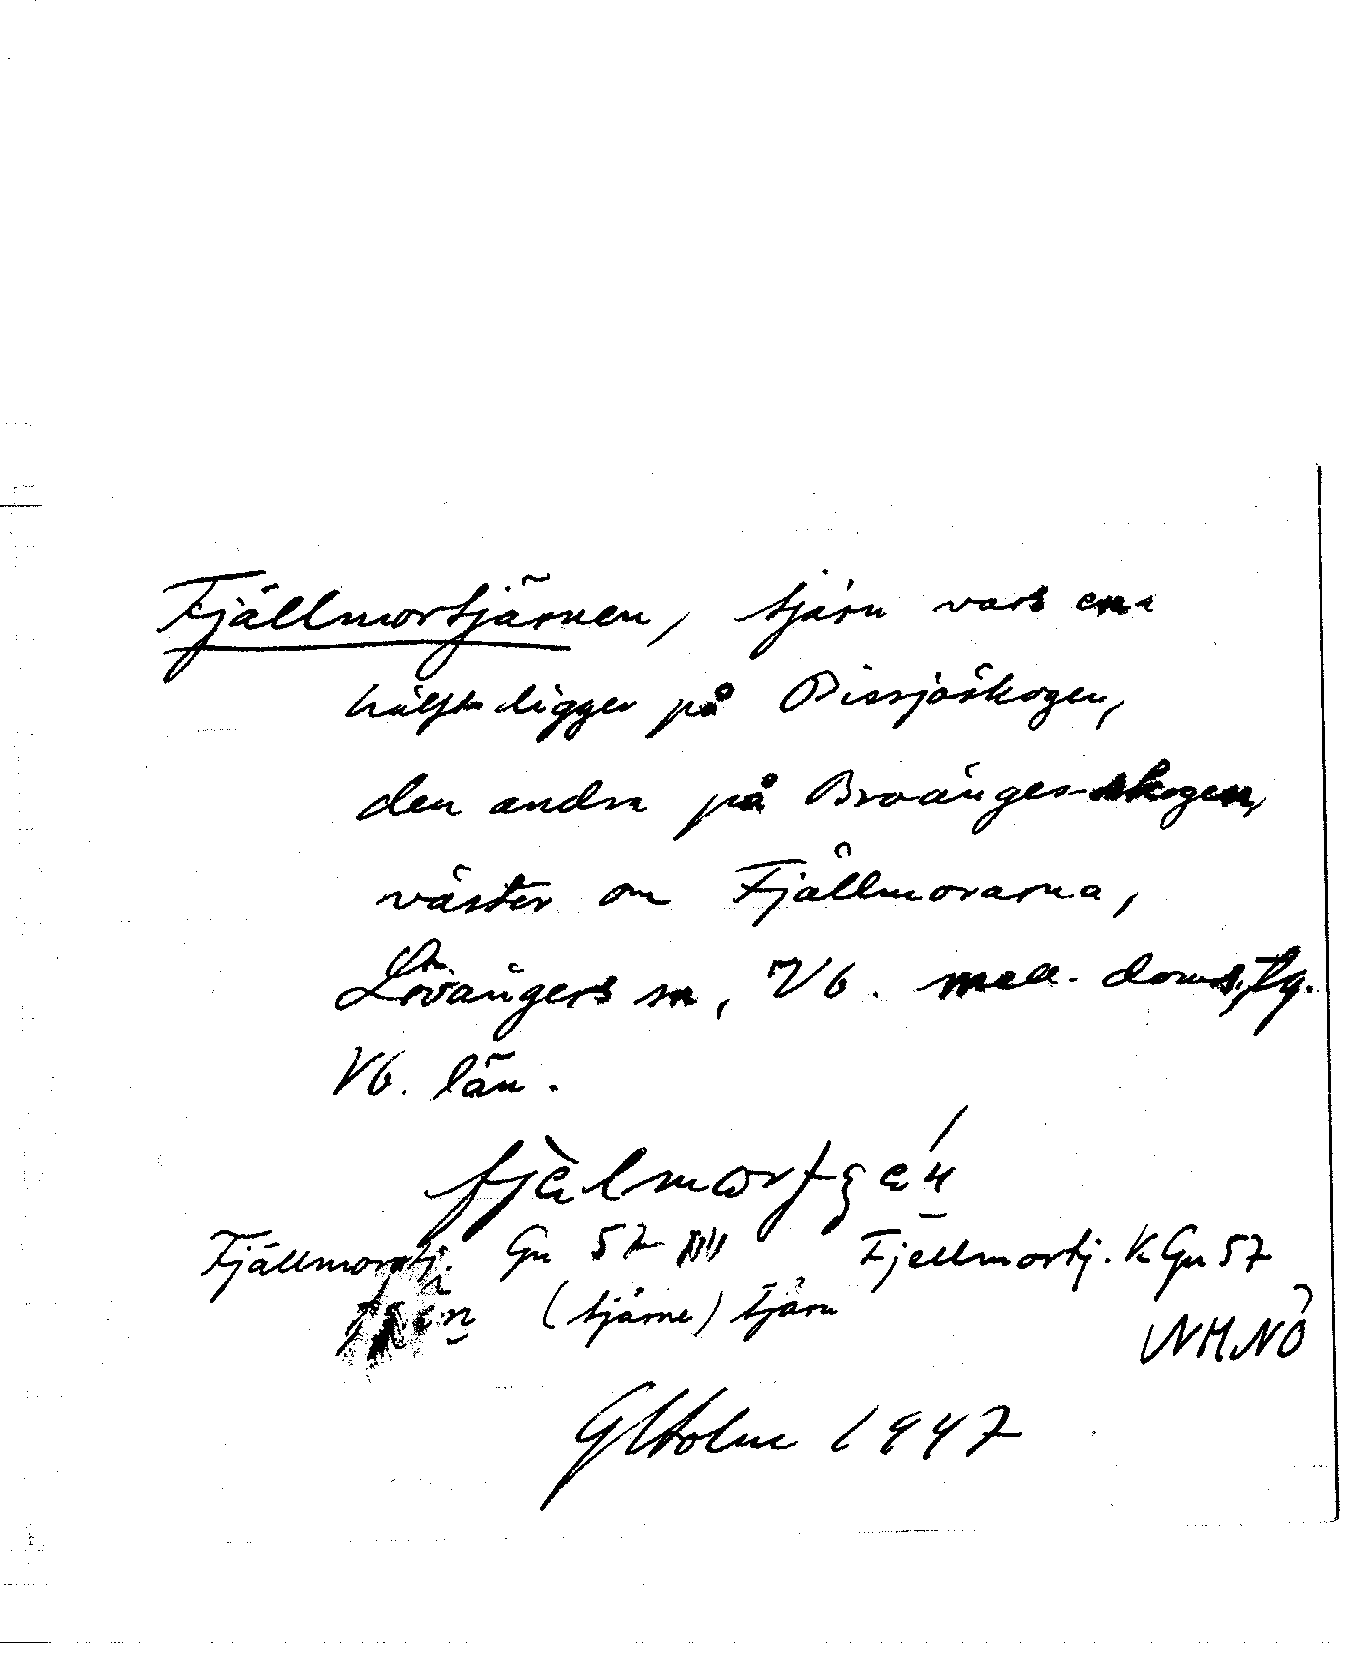 Fjällmortjärnen, tjärn vars ena
hälft ligger på Bissjöskogen,
den andra på Broängerskogen,
väster om Fjällmorarna,
Lövångers sn, Vb. mell. doms. tg.
Vb. län.
fjèlmorţʂén
Fjällmortj. Gn 57 Fjellmortj. K Gn 57
(tjärne) tjärn
NMNÖ
GHolm 1947